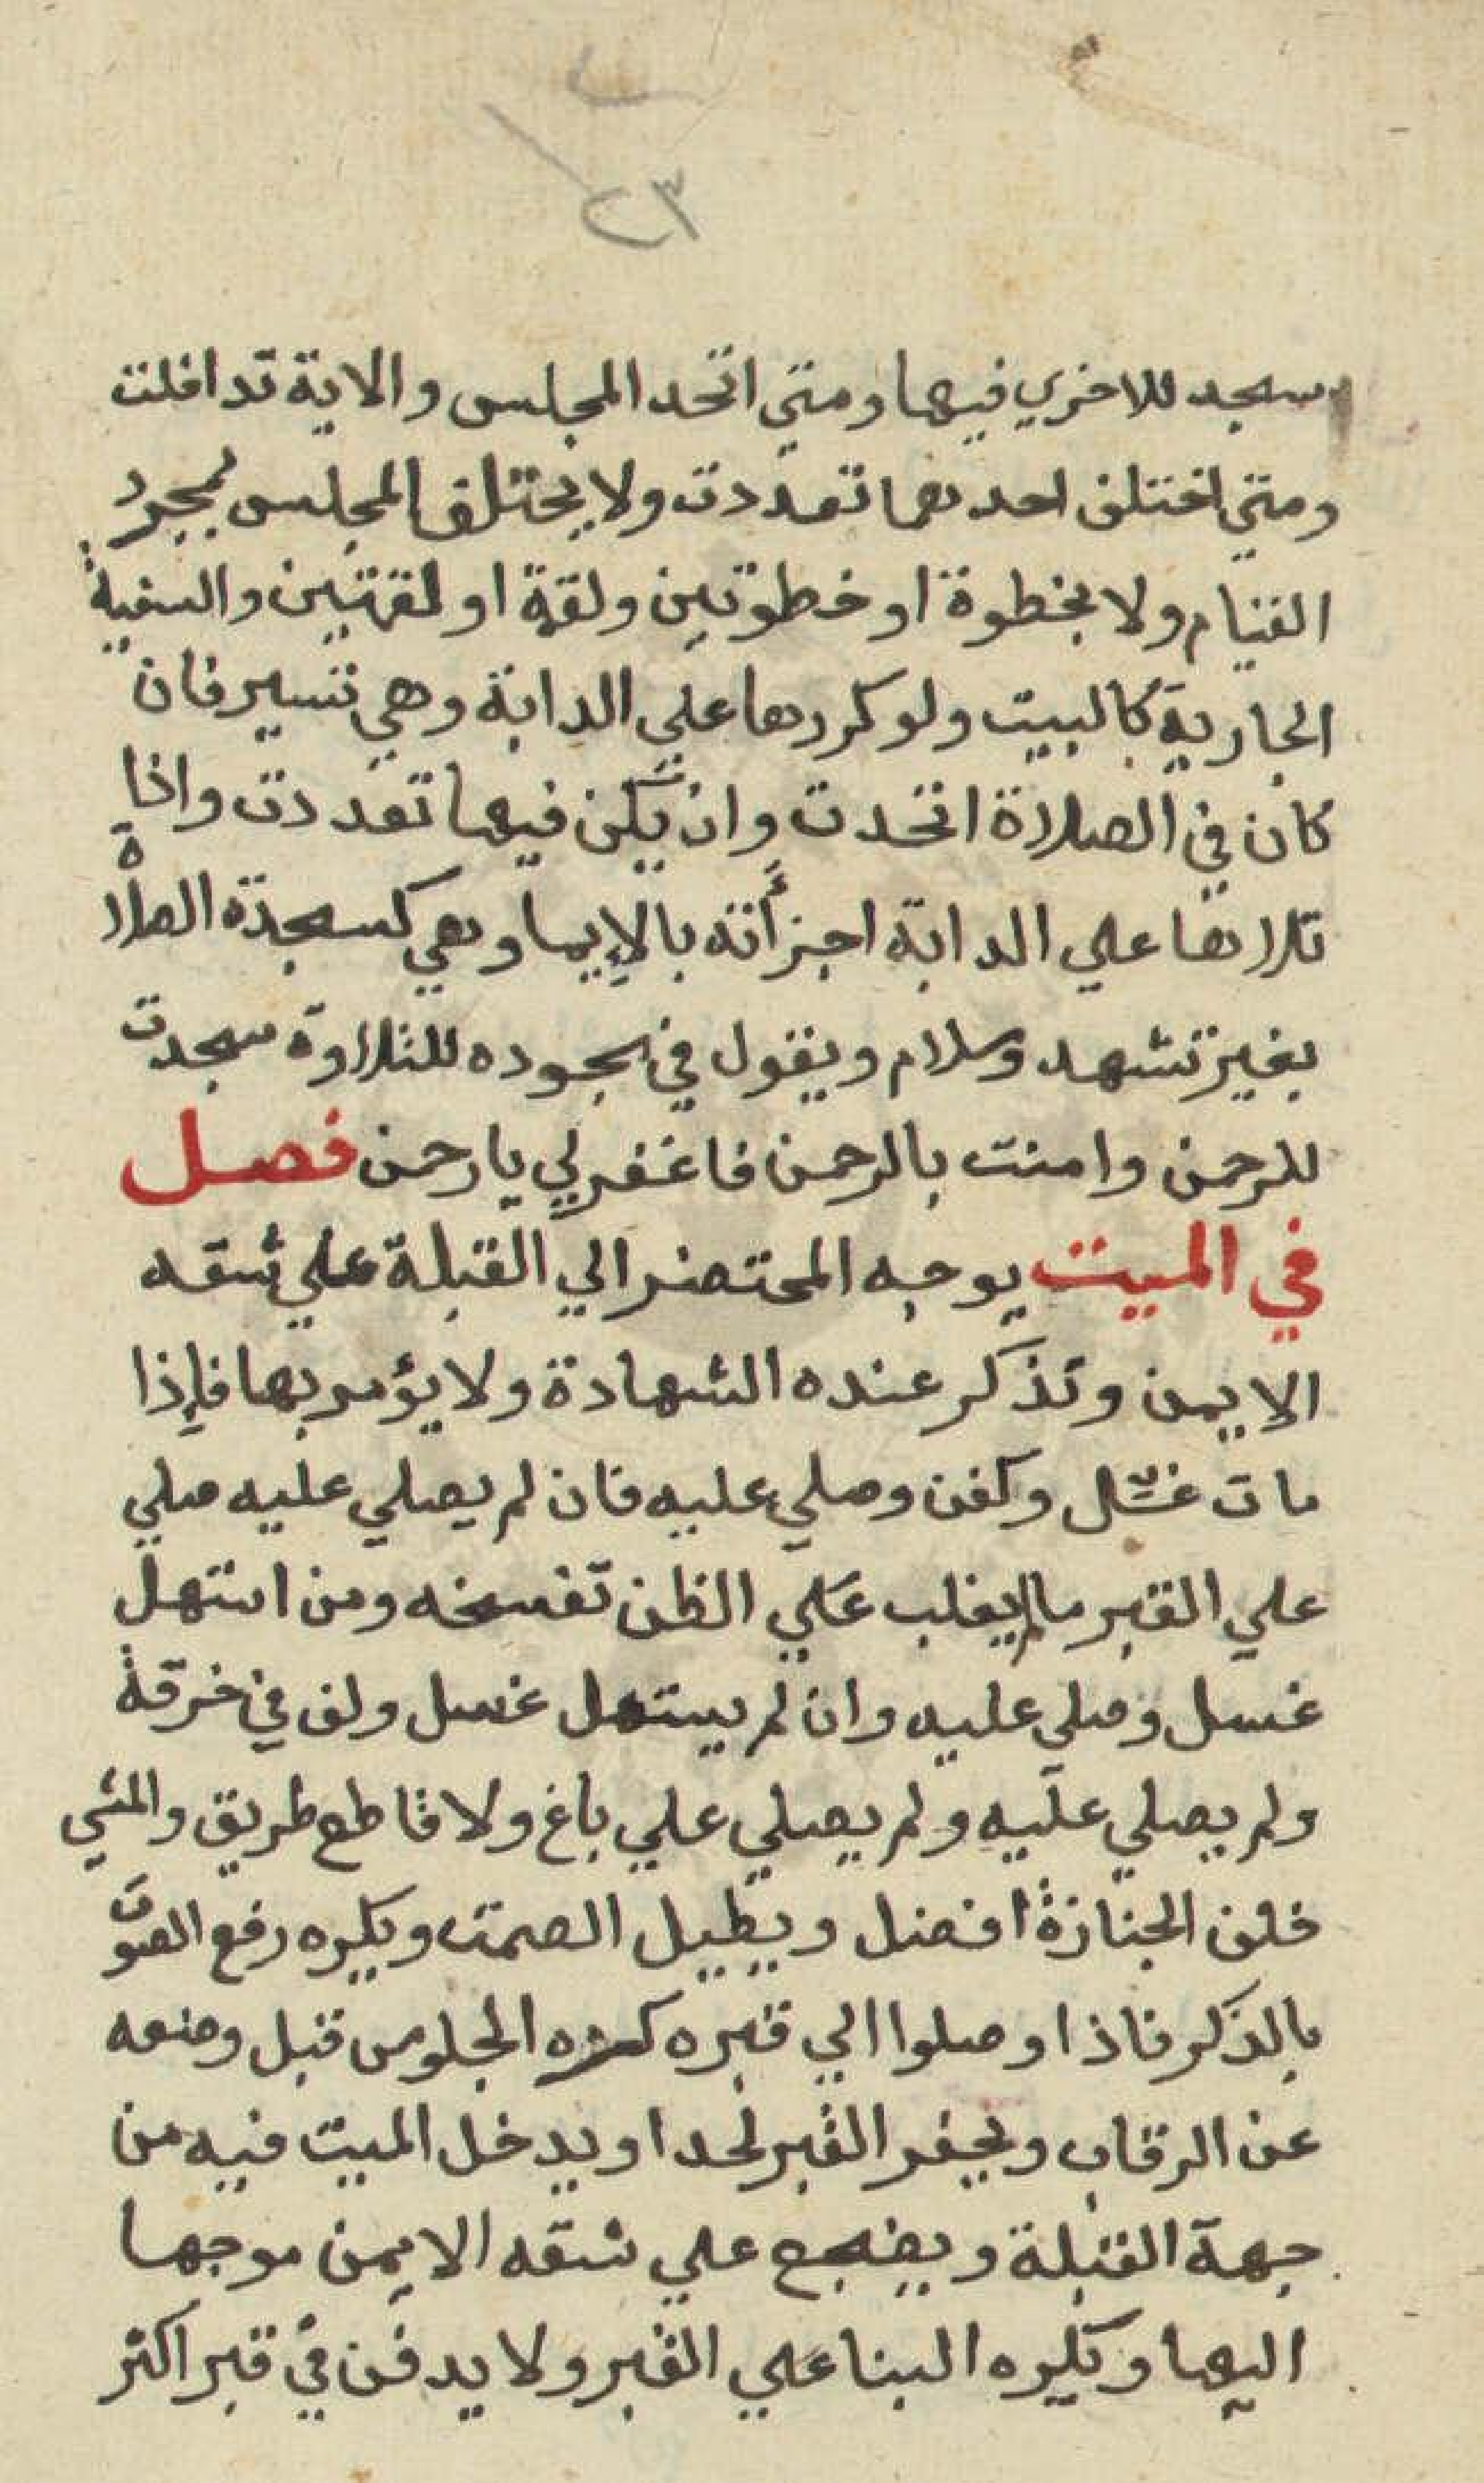 ٢٣
سجد للاخري فيها ومتي اتحد المجلس والاية تداخلت
ومتي اختلف احدهما تعددت ولا يختلف المجلس بمجرد
القيام ولا بخطوة او خطوتين ولقمة او لقمتين والسفينة
الجارية كالبيت ولو كررها علي الدابة وهي تسير فان
كان في الصلاة اتحدت وان يكن فيها تعددت واذا
تلاها علي الدابة اجزأته بالإيما وهي كسجدة الصلاة
بغير تشهد وسلام ويقول في سجوده للتلاوة سجدت
للرحمن وامنت بالرحمن فاغفر لي يا رحمن فصل
في الميت يوجه المحتضر الي القبلة علي شقه
الايمن وتذكر عنده الشهادة ولا يؤمر بها فإذا
مات غسّل وكفن وصلي عليه فان لم يصلي عليه صلي
علي القبر مالم يغلب علي الظن تفسخه ومن استهل
غسل وصلي عليه وان لم يستهل غسل ولف في خرقة
ولم يصلي عليه ولم يصلي علي باغ ولا قاطع طريق والمشي
خلف الجنازة افضل ويطيل الصمت ويكره رفع الصوت
بالذكر فاذا وصلوا الي قبره كره الجلوس قبل وضعه
عن الرقاب ويحفر القبر لحدا ويدخل الميت فيه من
جهة القبلة ويضجع علي شقه الايمن موجها
اليها ويكره البنا علي القبر ولا يدفن في قبر اكثر